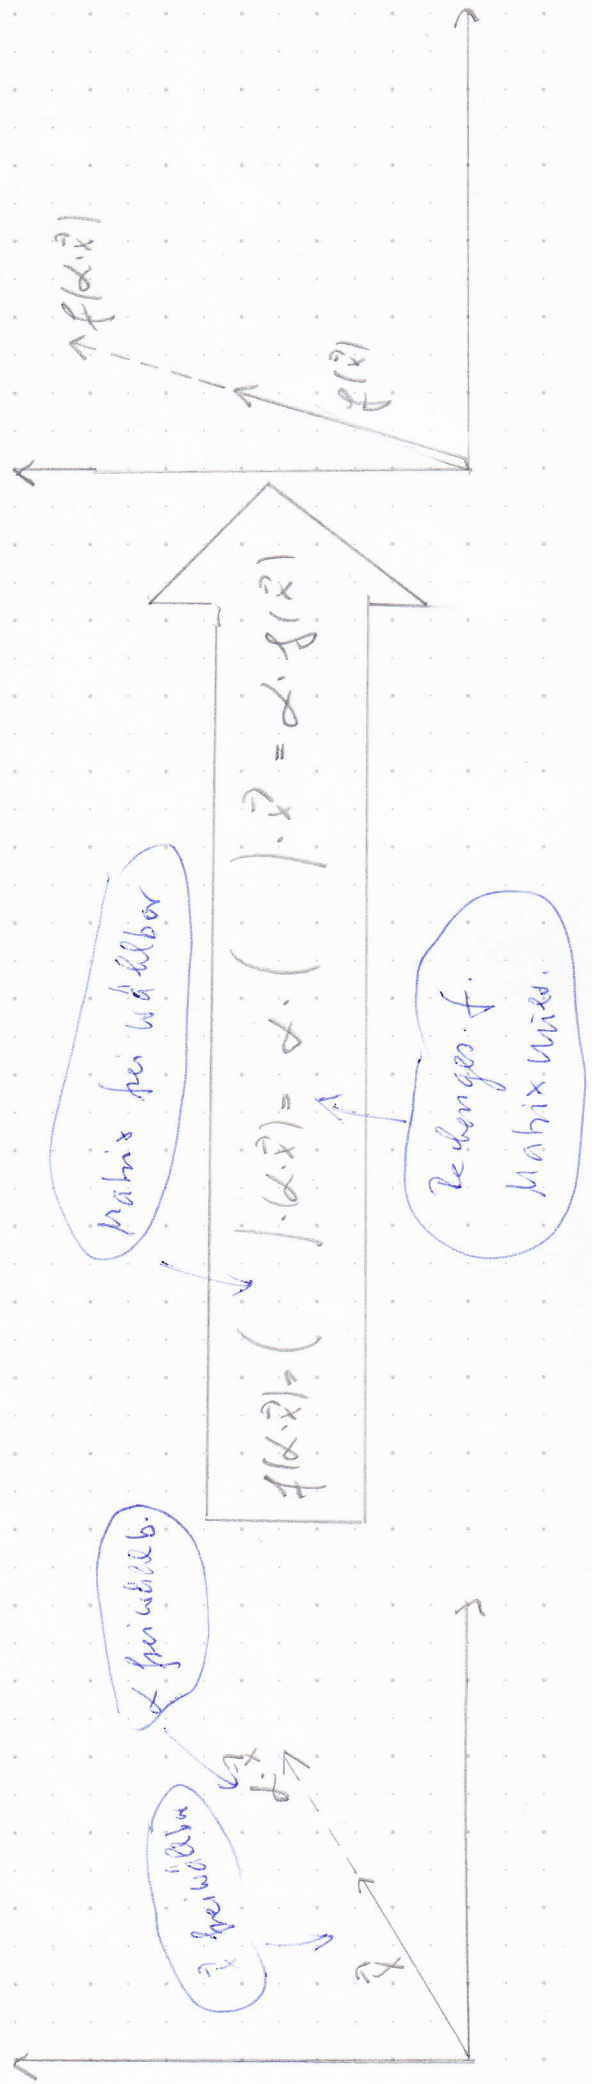 x⃗ frei wählbar
α frei wählb.
α·x⃗
x⃗
Matrix frei wählbar
f(α·x⃗) = ( )·(α·x⃗) = α·( )·x⃗ = α·f(x⃗)
Rechenges. f.
f(α·x⃗)
f(x⃗)